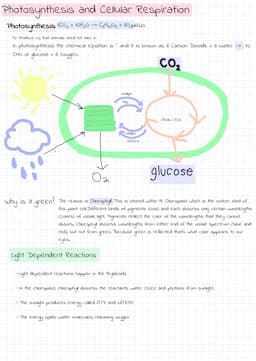 Photosynthesis and Cellular Respiration
Photosynthesis 6CO₂ + 6H₂O → C₆H₁₂O₆ + 6O₂
In photosynthesis the chemical equation is ^ and it is known as 6 Carbon Dioxide + 6 water
CHO or glucose + 6 oxygen.
CO₂
O₂
glucose
Why is it green? The reason is Chlorophyll. This is stored within th Chloroplast which is the
this plant cell. Different kinds of pigments exist and each absorbs only certain wavelengths
(colors) of visible light. Pigments reflect the color of the wavelengths that they cannot
absorb. Chlorophyll absorbs wavelengths from either end of the visible spectrum (blue and
red), but not from green. Because green is reflected that's what color appears to our
eyes.
Light Dependent Reactions
• Light dependent reactions happen in the thylakoids
• In the chloroplast, chlorophyll absorbs the reactants water (H2O) and photons from sunlight.
• The sunlight produces energy called ATP and
• The energy splits water molecules, releasing oxygen